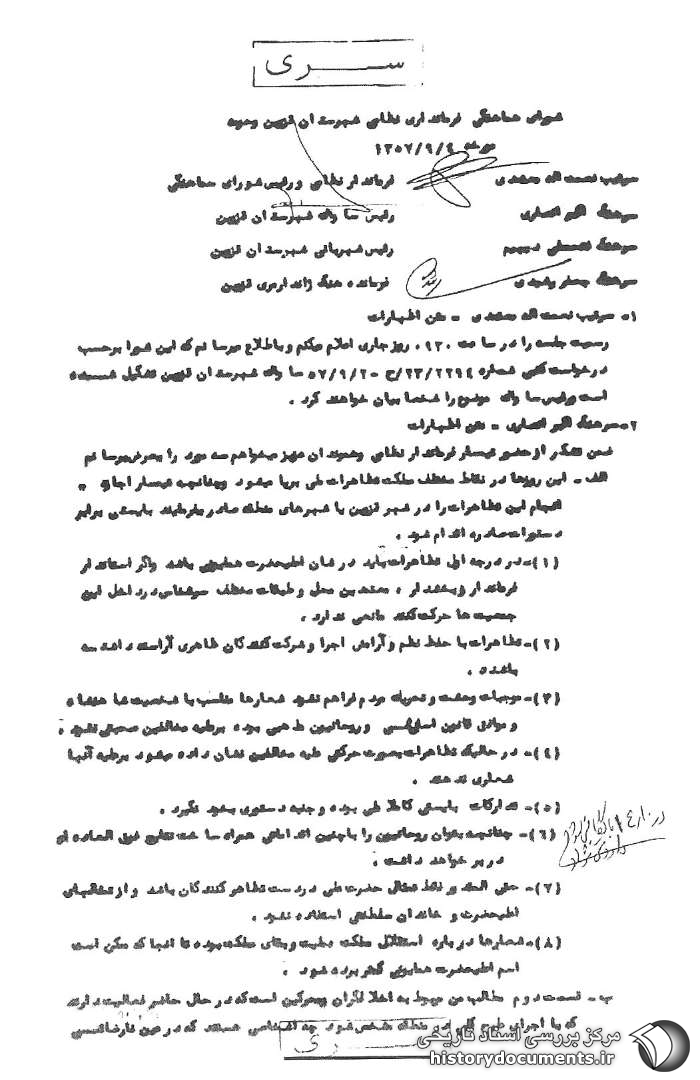 سری
شورای هماهنگی فرمانداری نظامی شهرستان قزوین وحومه
مورخه ۱۳۵۷/۹/۴
سرتیپ نعمت اله معتمدی فرماندار نظامی و رئیس شورای هماهنگی
سرهنگ اکبر انصاری رئیس ساواک شهرستان قزوین
سرهنگ رئیس شهربانی شهرستان قزوین
سرهنگ جعفر رشیدی فرمانده هنگ ژاندارمری قزوین
۱- سرتیپ نعمت اله معتمدی - متن اظهارات
رسمیت جلسه را در ساعت ۰۹۳۰ روز جاری اعلام میکنم و باطلاع میرسانم که این شورا برحسب
درخواست کتبی شماره ۲۳/۲۲۹۴/ح - ۵۷/۹/۲ ساواک شهرستان قزوین تشکیل شده
است و رئیس ساواک موضوع را شخصا بیان خواهند کرد .
۲- سرهنگ اکبر انصاری - متن اظهارات
ضمن تشکر از حضور تیمسار فرماندار نظامی و هموندان عزیز میخواهم سه مورد را بعرض برسانم
الف - این روزها در نقاط مختلف مملکت تظاهرات ملی برپا میشود و چنانچه تیمسار اجازه
انجام این تظاهرات را در شهر قزوین یا شهرهای منطقه صادر بفرمایند بایستی برابر
دستورات صادره اقدام شود .
(۱)- در درجه اول تظاهرات باید در شان اعلیحضرت همایونی باشد و اگر استاندار
فرماندار و بخشدار ، معتمدین محل و طبقات مختلف سرشناس در داخل این
جمعیت ها حرکت کنند مانعی ندارد .
(۲)- تظاهرات با حفظ نظم و آرامش اجرا و شرکت کنندگان ظاهری آراسته داشته
باشند .
(۳)- موجبات وحشت و تحریک مردم فراهم نشود شعارها مناسب با شخصیت شاهنشاه
و موافق قانون اساسی و روحانیون مذهبی بوده برعلیه مخالفین صحبتی نشود .
(۴)- در حالیکه تظاهرات بصورت حرکتی علیه مخالفین نشان داده میشود برعلیه آنها
شعاری ندهند .
(۵)- تدارکات بایستی کاملا ملی بوده و جنبه دستوری بخود نگیرد .
(۶)- چنانچه بتوان روحانیون را با چنین اقداماتی همراه ساخت نتایج فوق العاده ای
در بر خواهد داشت .
(۷)- حتی المقدور فقط تمثال حضرت علی در دست تظاهر کنندگان باشد و از تمثالهای
اعلیحضرت و خاندان سلطنتی استفاده نشود .
(۸)- شعارها درباره استقلال مملکت و بقای مملکت بوده تا آنجا که ممکن است
اسم اعلیحضرت همایونی کمتر برده شود .
ب - قسمت دوم مطالب من مربوط به اخلالگران است که در حال حاضر فعالیت دارند
که با اجرای طرح منطقه مشخص شود چه اشخاصی هستند که در عین
سری
مرکز بررسی اسناد تاریخی
historydocuments.ir